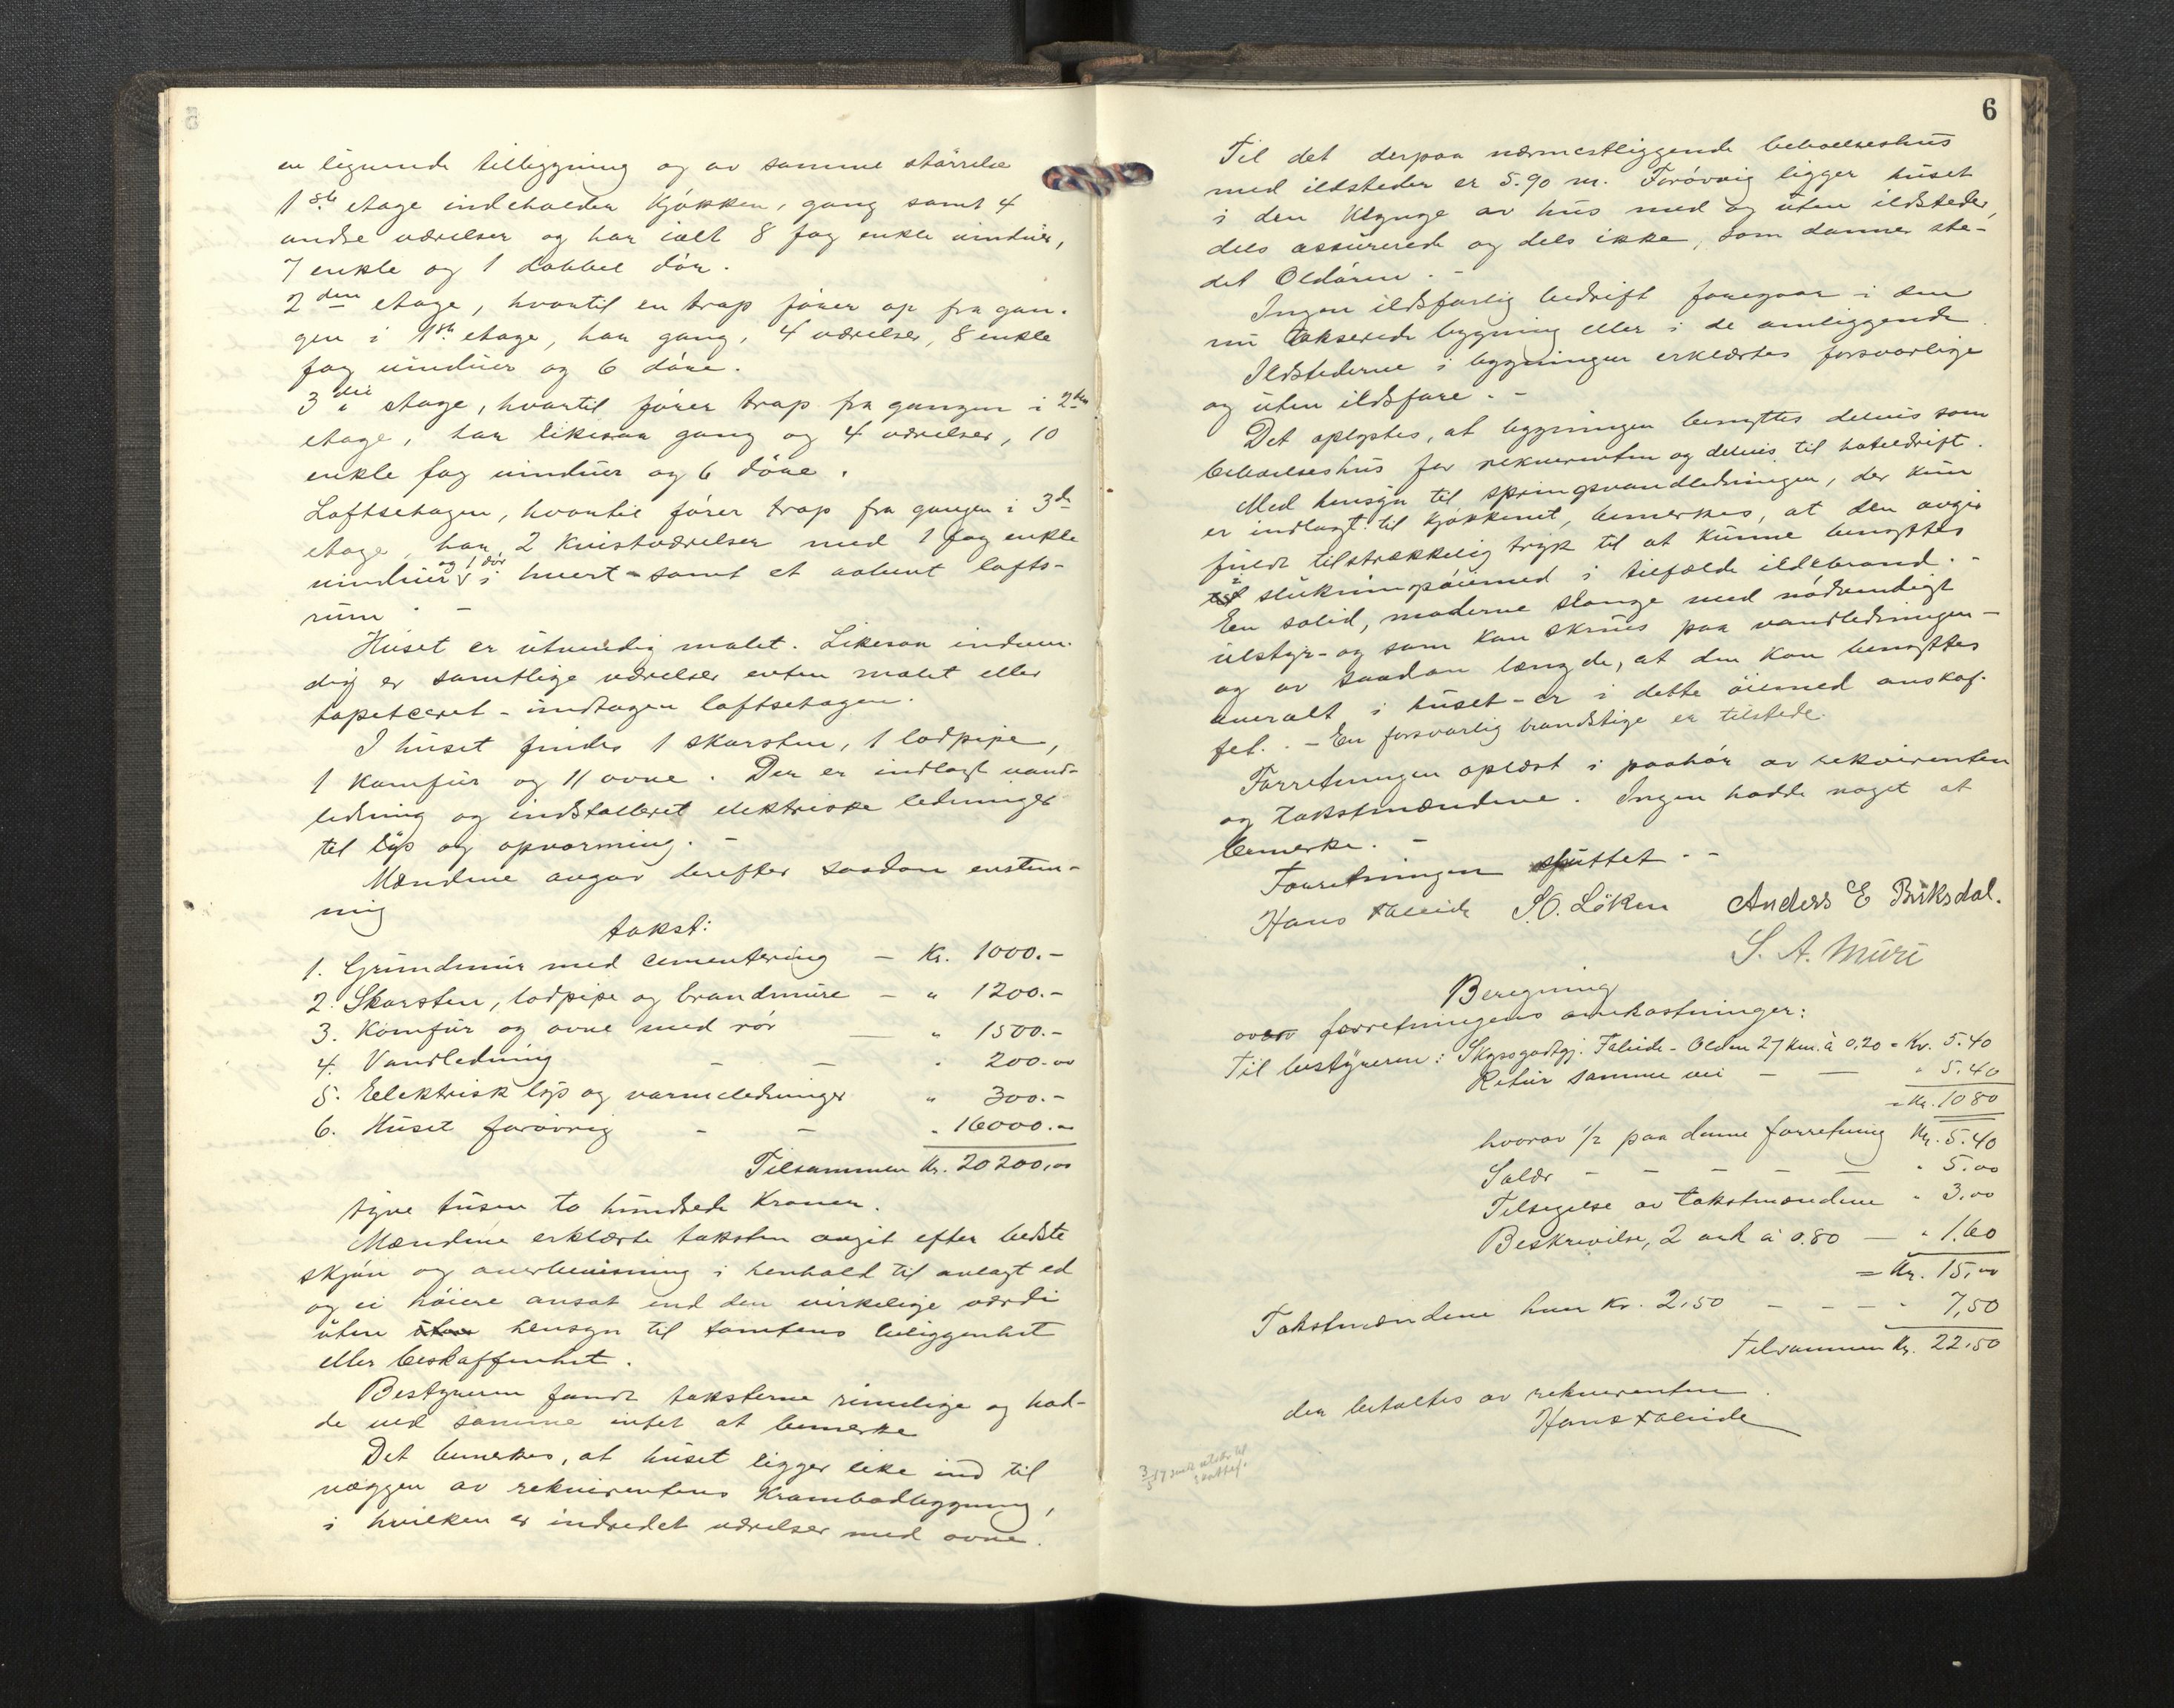 en lignende tilbygning og av samme størrelse
1ste etage indeholder kjøkken, gang samt 4
andre værelser og har ialt 8 fag enkle vinduer,
7 enkle og 1 dobbel dør.
2den etage, hvortil en trap fører op fra gan-
gen i 1ste etage, har gang, 4 værelser, 8 enkle
fag vinduer og 6 døre.
3die etage, hvortil fører trap fra gangen i 2den
etage, har likesaa gang og 4 værelser, 10
enkle fag vinduer og 6 døre.
Loftsetagen, hvortil fører trap fra gangen i 3de
etage, har 2 kvistværelser med 1 fag enkle
vinduer og 1 dør i hvert - samt et aapent lofts-
rum. -
Huset er utvendig malet. Likesaa indven-
dig er samtlige værelser enten malet eller
tapetceret - undtagen loftsetagen.
I huset findes 1 skorsten, 1 lodpipe,
1 komfur og 11 ovne. Der er indlagt vand-
ledning og indstalleret elektriske ledninger
til lys og opvarming. -
Mændene avgav derefter saadan enstem-
mig
takst:
1. Grundmur med cementering - Kr. 1000.-
2. Skorsten, lodpipe og brandmure - " 1200.-
3. Komfur og ovne med rør - " 1500.-
4. Vandledning - - " 200.00
5. Elektrisk lys og varmeledninger " 300.-
6. Huset forøvrig - - " 16000.-
Tilsammen Kr. 20200,00
tyve tusen to hundrede Kroner.
Mændene erklærte taksten avgit efter bedste
skjøn og overbevisning i henhold til avlagt ed
og ei høiere ansat end den virkelige værdi
uten uten hensyn til tomtens beliggenhet
eller beskaffenhet.
Bestyreren fandt taksterne rimelige og had-
de ved samme intet at bemerke
Det bemerkes, at huset ligger like ind til
væggen av rekvirentens krambodbygning,
i hvilken er indredet værelser med ovne.
6
Til det derpaa nærmestliggende beboelseshus
med ildsteder er 5.90 m. Forøvrig ligger huset
i den klynge av hus med og uten ildsteder,
dels assurerede og dels ikke, som danner ste-
det Oldøren. -
Ingen ildsfarlig bedrift foregaar i den
nu takserede bygning eller i de omliggende.
Ildstederne i bygningen erklærtes forsvarlige
og uten ildsfare. -
Det oplystes, at bygningen benyttes delvis som
beboelseshus for rekvirenten og delvis til hoteldrift.
Med hensyn til springvandledningen, der kun
er indlagt til kjøkkenet, bemerkes, at den avgir
fuldt tilstrækkelig tryk til at kunne benyttes
i slukningsøiemed i tilfælde ildebrand. -
Een solid, moderne slange med nødvendigt
utstyr - og som kan skrues paa vandledningen -
og av saadan længde, at den kan benyttes
overalt i huset - er i dette øiemed anskaf-
fet. - En forsvarlig brandstige er tilstede.
Forretningen oplæst i paahør av rekvirenten
og takstmændene. Ingen hadde noget at
bemerke. -
Forretningen sluttet. -
Hans Faleide S.O. Löken Anders E Briksdal.
S. A. Muri
Beregning
over forretningens omkostninger:
Til bestyreren: Skyssgodtgj. Faleide - Olden 27 km. à 0.20 = Kr. 5.40
Retur samme vei - - " 5.40
= Kr. 10 80
hvorav 1/2 paa denne forretning Kr. 5.40
Salær - - - - - " 5.00
Tilsigelse av takstmændene " 3.00
Beskrivelse, 2 ark à 0.80 - " 1.60
= Kr. 15,00
Takstmændene hver Kr. 2.50 - - - " 7,50
Tilsammen Kr. 22.50
der betaltes av rekvirenten.
Hans Faleide